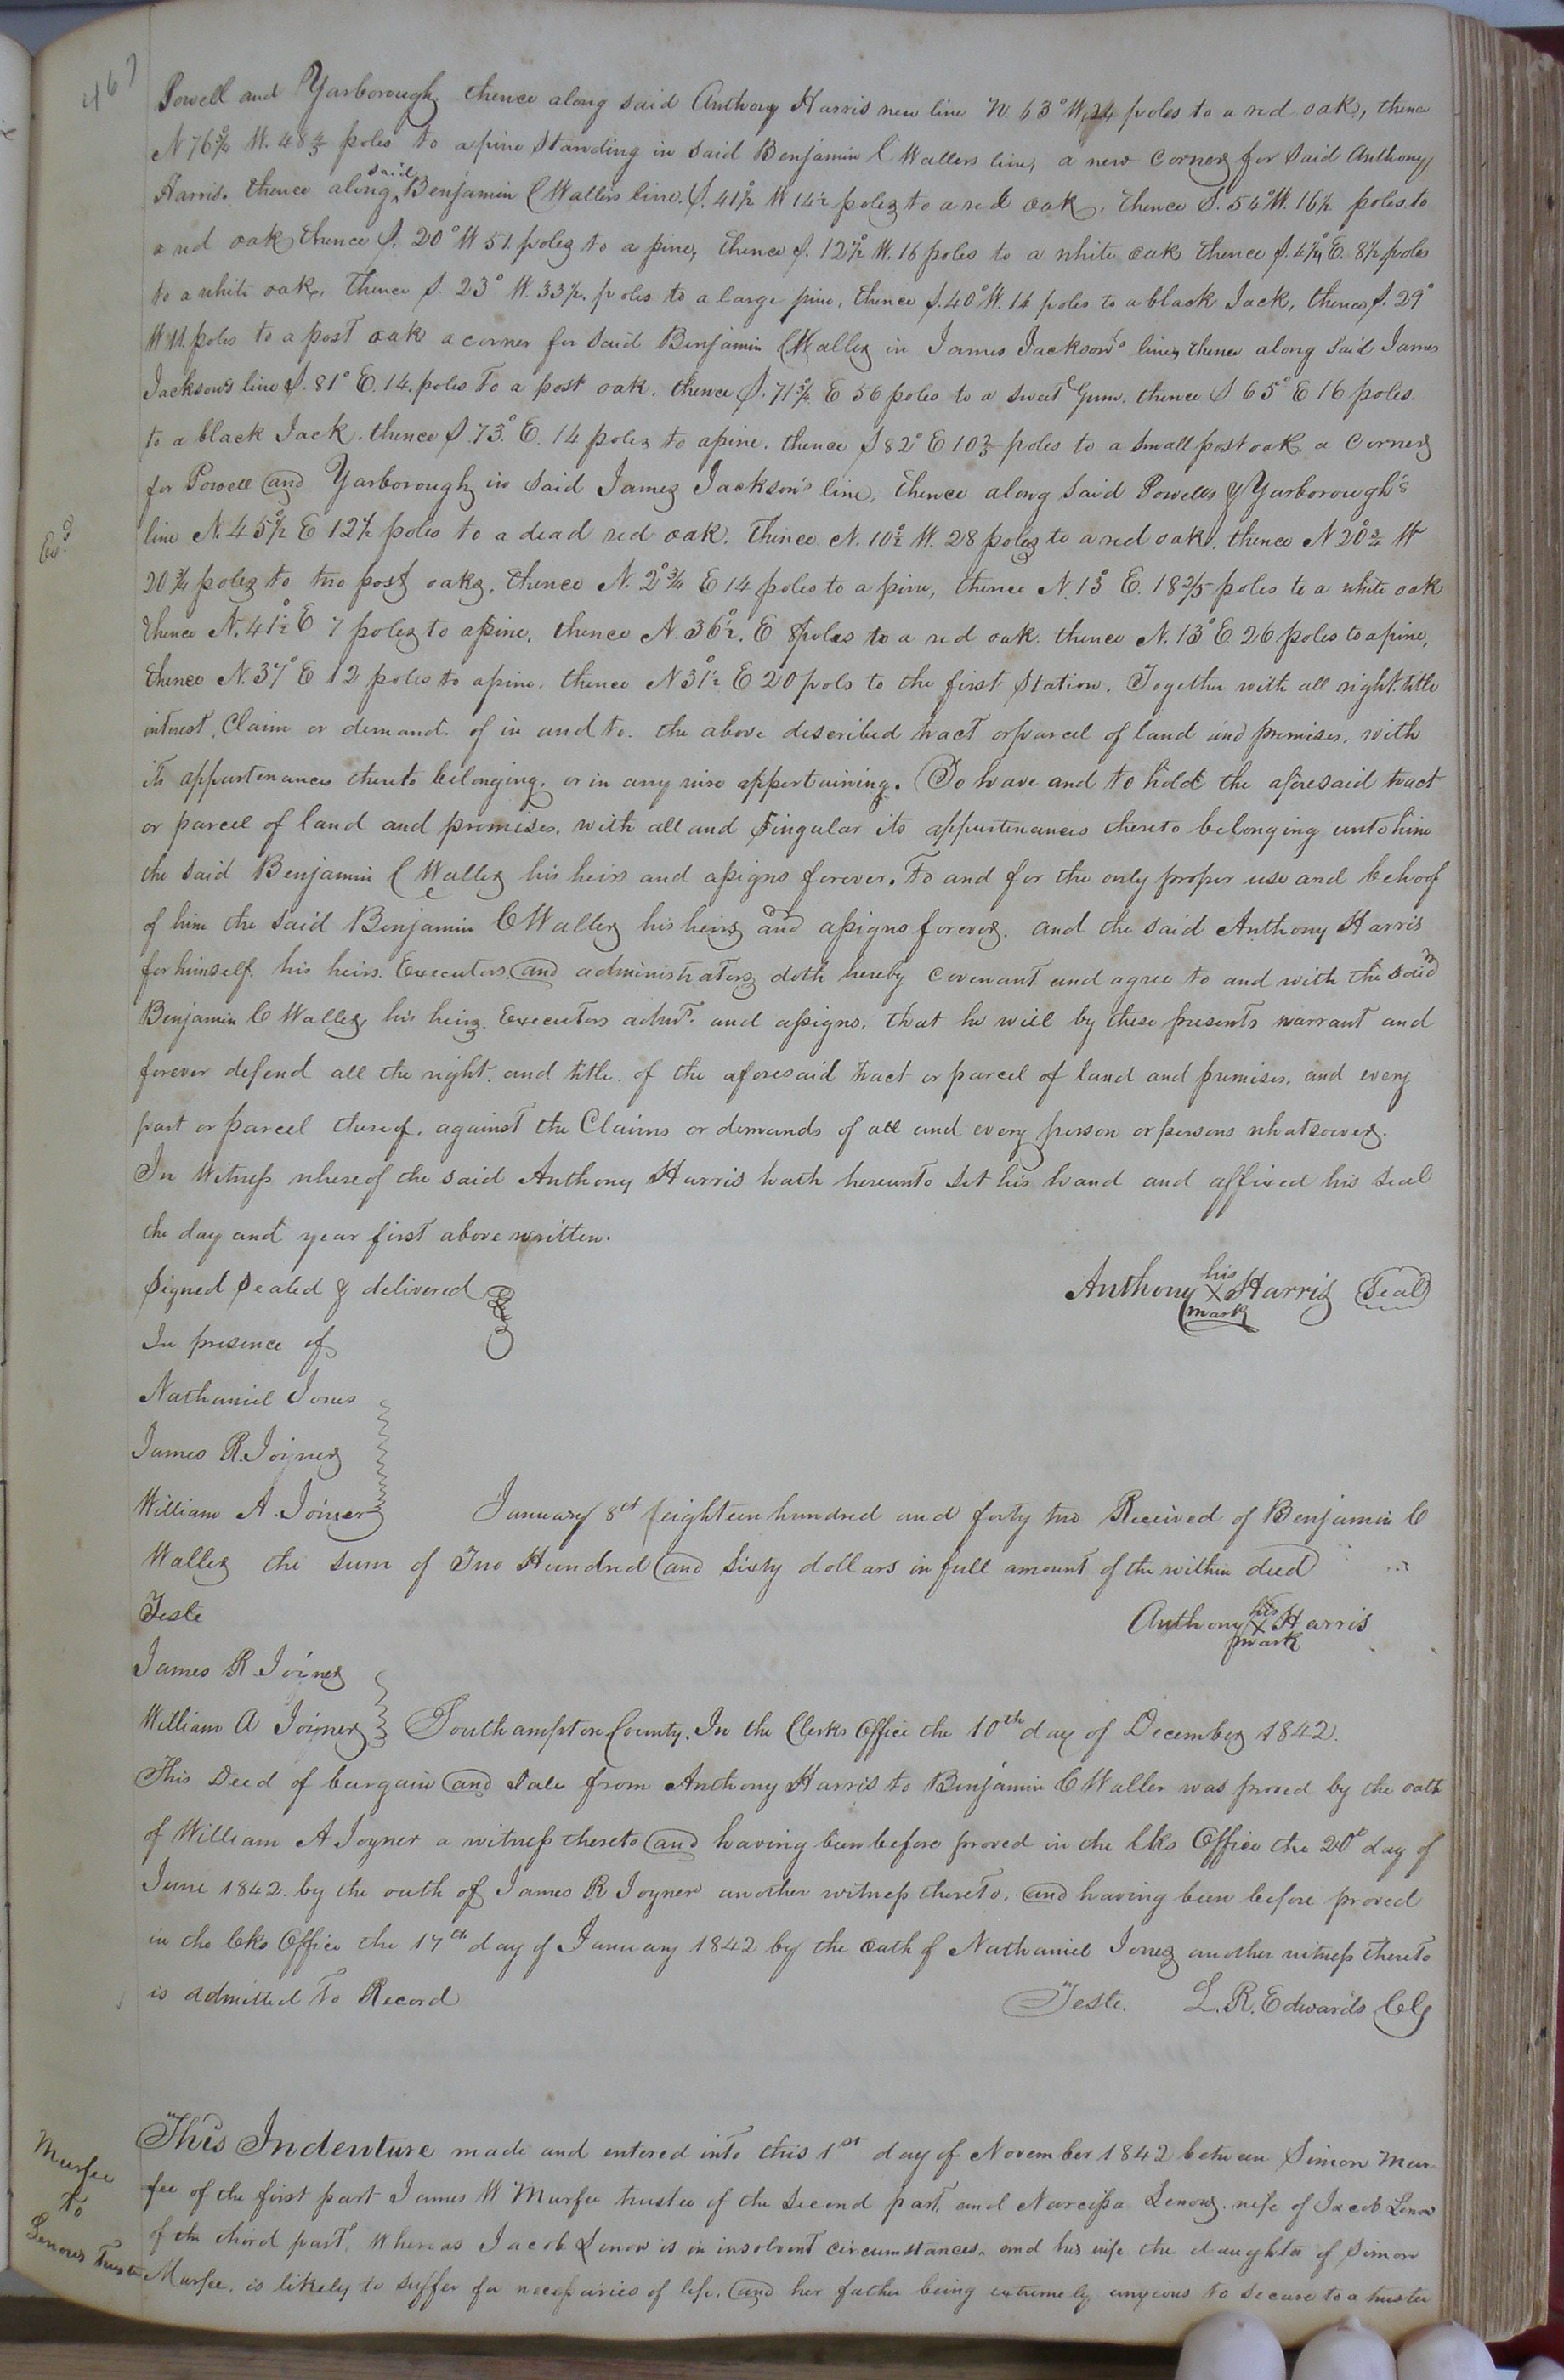 467
Powell and Yarborough thence along said Anthony Harris new line N. 63° W, 24 poles to a red oak, thence
N 76¾° W. 48⅔ poles to a pine standing in said Benjamin C Wallers line, a new corner for said Anthony
Harris. thence along said Benjamin C Wallers line. S. 41½° W 14½ poles to a red oak, thence S. 54° W. 16½ poles to
a red oak thence S. 20° W 51 poles to a pine, thence S. 12½° W. 16 poles to a white oak thence S. 4½° E. 8½ poles
to a white oak, thence S. 23° W. 33½ poles to a large pine, thence S. 40° W. 14 poles to a black Jack, thence S. 29°
W 11 poles to a post oak a corner for said Benjamin C Waller in James Jackson's line, thence along said James
Jackson's line S. 81° E. 14. poles to a post oak. thence S. 71¾° E 56 poles to a sweet Gum. thence S 65° E 16 poles.
to a black Jack. thence S. 73.° E. 14 poles to a pine. thence S 82° E 10⅔ poles to a small post oak a corner
for Powell and Yarborough in said James Jackson's line, thence along said Powells & Yarborough's
Ex.d
line N. 45½° E 12½ poles to a dead red oak. thence N. 10½° W. 28 poles to a red oak. thence N 20¾° W
20¾ poles to two post oaks. thence N. 2°¾ E 14 poles to a pine, thence N. 13° E. 18 2/5 poles to a white oak
thence N. 41½° E 7 poles to a pine, thence N. 36½°. E 8 poles to a red oak. thence N. 13° E. 26 poles to a pine,
thence N. 37° E 12 poles to a pine. thence N 31½° E 20 pols to the first station. Together with all right. title
interest, Claim or demand. of in and to. the above described tract or parcel of land and premises, with
its appurtenances thereto belonging. or in any wise appertaining. To have and to hold the aforesaid tract
or parcel of land and premises, with all and singular its appurtenances thereto belonging unto him
the said Benjamin C Waller his heirs and assigns forever. To and for the only proper use and behoof
of him the said Benjamin C Waller his heirs and assigns forever. and the said Anthony Harris
for himself. his heirs. Executors and administrators doth hereby covenant and agree to and with the said
Benjamin C Waller, his heirs. Executors admrs. and assigns, that he will by these presents warrant and
forever defend all the right. and title. of the aforesaid tract or parcel of land and premises. and every
part or parcel thereof. against the Claims or demands of all and every person or persons whatsoever.
In Witness whereof the said Anthony Harris hath hereunto set his hand and affixed his seal
the day and year first above written.
Signed Sealed & delivered
Anthony his X mark Harris Seal
In presence of
Nathaniel Jones
James R. Joyner
William A. Joiner January 8th eighteen hundred and forty two Received of Benjamin C
Waller the sum of Two Hundred and Sixty dollars in full amount of the within deed
Teste
Anthony his X mark Harris
James R. Joiner
William A Joyner Southampton County. In the Clerks Office the 10th day of December 1842.
This Deed of bargain and Sale from Anthony Harris to Benjamin C Waller was proved by the oath
of William A Joyner a witness thereto and having been before proved in the Cks Office the 20th day of
June 1842. by the oath of James R Joyner another witness thereto. and having been before proved
in the Cks Office the 17th day of January 1842 by the oath of Nathaniel Jones another witness thereto
is admitted to Record
Teste. L. R. Edwards
Murfee
To
Lenows Trustee
This Indenture made and entered into this 1st day of November 1842 between Simon Mur-
fee of the first part James W Murfee trustee of the second part and Narcissa Lenow. wife of Jacob Lenow
of the third part, Whereas Jacob Lenow is in insolvent circumstances. and his wife the daughter of Simon
Murfee, is likely to suffer for necessaries of life. and her father being extremely anxious to secure to a trustee